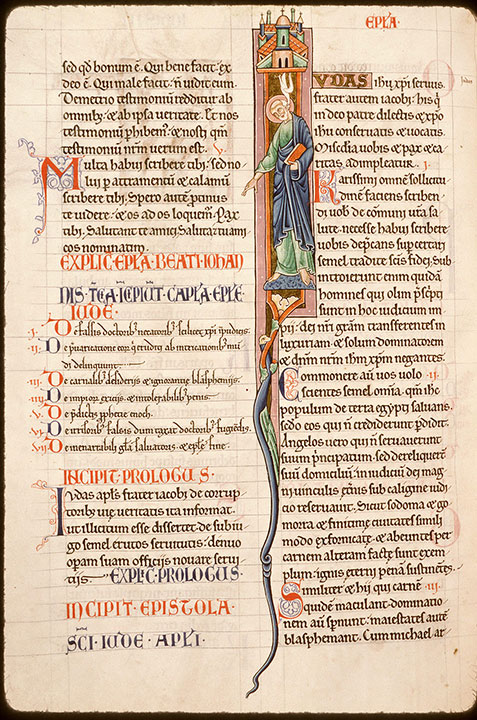 EPLA·
sed qd bonum ē. Qui bene facit· ex
deo ē. Qui male facit· n̄ uidit eum.
Demetrio testimoniū redditur ab
omnib; & ab ipsa ueritate. Et nos
testimoniū phibem'· & nosti qm̄
testimoniū nr̄m uerum est.
Multa habui scribere tibi· sed no
lui p atramentū & calamū
scribere tibi. Spero autē ptinus
te uidere· & os ad os loquem'. Pax
tibi. Salutant te amici. Saluta tu ami
cos nominatim.
EXPLIC· EPLA· BEATI· IOHAN
NIS· T̄CA· ICIPIUT· CAPLA· EPLE
IUDE·
·I· De falsis doctorib; negatorib; scilicet xpi
·II· De
di delinquunt.
·III· De carnalib; desiderijs & ignorantię blasphemijs.
·IIII· De impior & intolerabilib; penis
·V· De pdictis pphetię enoch.
·VI· De falsis doctorib; fugiendis.
·VII· De inenarrabili gła saluatoris & eple fine.
INCIPIT· PROLOGUS·
Iudas apls frater iacobi de corrup
torib; uię ueritatis ita informat·
ut illicitum esse dissertet de subiu
go semel erutos seruitutis· denuo
opam suam officijs nouare serui
tijs. EXPLIC· PROLOGUS·
INCIPIT· EPISTOLA·
SC̄I· IUDE· APLI·
IUDAS ihu xpi seruus·
frater autem iacobi· his q̇
in deo patre dilectis & xpo
ihu conseruatis & uocatis.
Misedia uobis & pax & ca
ritas adimpleatur. ·I·
Karissimi omnē sollicitu
dinē faciens scriben
di uob de cōmuni ur̄a sa
lute· necesse habui scribere
uobis depcans supcertari
semel traditę scis fidei. Sub
introierunt enim quidā
homines qui olim pscpti
sunt in hoc iudicium im
pij· dei nr̄i grām transferentes in
luxuriam· & solum dominatorem
& dnm nr̄m ihm xpm negantes.
Commonere aū uos uolo ·II·
scientes semel om̄ia. qm̄ ihc
populum de terra egypti saluans·
sedo eos qui n̄ crediderunt pdidit.
Angelos uero qui n̄ seruauerunt
suum principatum· sed dereliquerunt
suū domiciliū· in iudiciū dei mag
ni uinculis etnis sub caligine iudi
cio reseruauit. Sicut sodoma & go
morra & finitimę ciuitates simili
modo exfornicatę· & abeuntes p
carnem alteram factę sunt exem
plum· ignis eterni penā sustinentes.
Similiter & hij qui carnē ·III·
quidē maculant· dominatio
nem aū spnunt· maiestates autē
blasphemant. Cum michael ar